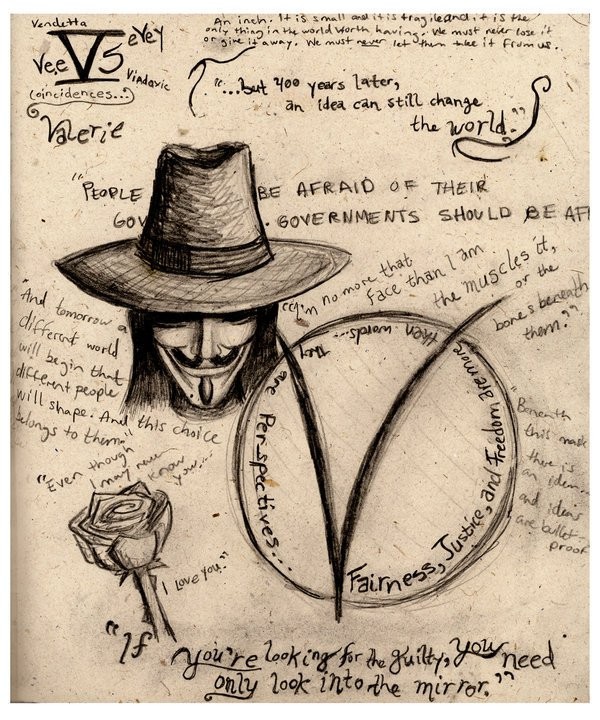 Vendetta
V 5
eVeY
Ve.e
Viadoxic
(coincidences...)
Valerie
An inch. It is small and it is fragile and it is the
only thing in the world worth having. We must never lose it
or give it away. We must never let them take it from us.
"...but 400 years later,
an idea can still change
the world."
"PEOPLE BE AFRAID OF THEIR
GOV . GOVERNMENTS SHOULD BE AF
"I'm no more that
face than I am
the muscles it,
or the
bones beneath
them."
"And tomorrow a
different world
will begin that
different people
will shape. And this choice
belongs to them."
"Even though
I may never
know
you....
I love you."
Fairness, Justice, and Freedom are more
then words... they
are Perspectives...
"Beneath
this mask
there is
an idea...
and ideas
are bullet-
proof
"If you're looking for the guilty, you need
only look into the mirror."